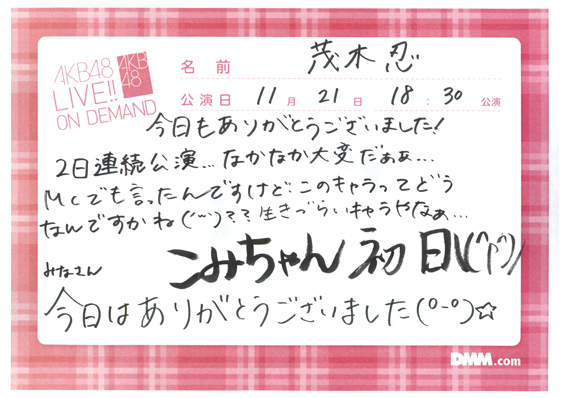 AKB48
LIVE!!
ON DEMAND
AKB
48
名前 茂木忍
公演日 11月21日 18:30公演
今日もありがとうございました!
2日連続公演... なかなか大変だぁぁ...
MCでも言ったんですけど、このキャラってどう
なんですかね(¨)?? 生きづらいキャラやなぁ...
みなさん こみちゃん 初日\(^p^)/
今日はありがとうございました(°-°)☆
DMM.com